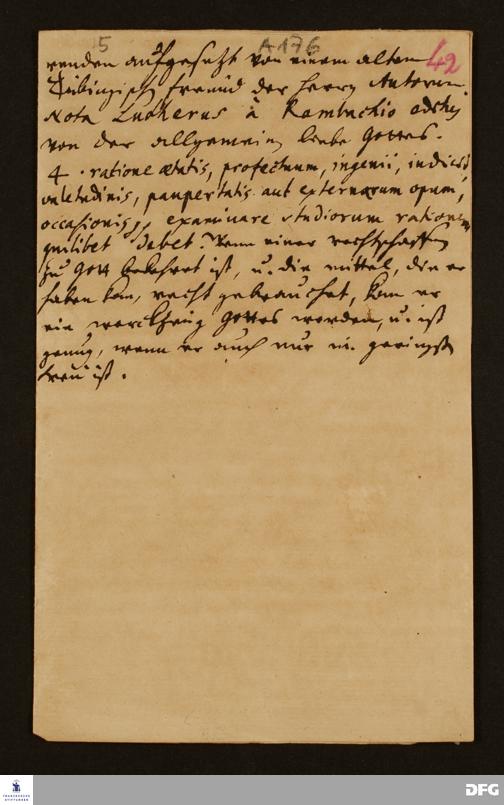 5 A176 42
renden aufgesetzt von einem alten
Tübingischen freund der Herrn Autorum.
Nota Lutherus à Rambachio
von der allgemeinen liebe Gottes.
4. ratione ætatis, profectuum, ingenii, iudicii
valetudinis, paupertatis aut externarum opum,
occasionis, examinare studiorum rationem
quilibet debet. Wenn einer rechtschaffen
zu Gott bekehret ist, u. die mittel, die er
haben kan, recht gebrauchet, kan er
ein werckzeug Gottes werden, u. ist
genug, wenn er auch nur im geringsten
treu ist.
FRANCKESCHE
STIFTUNGEN
DFG